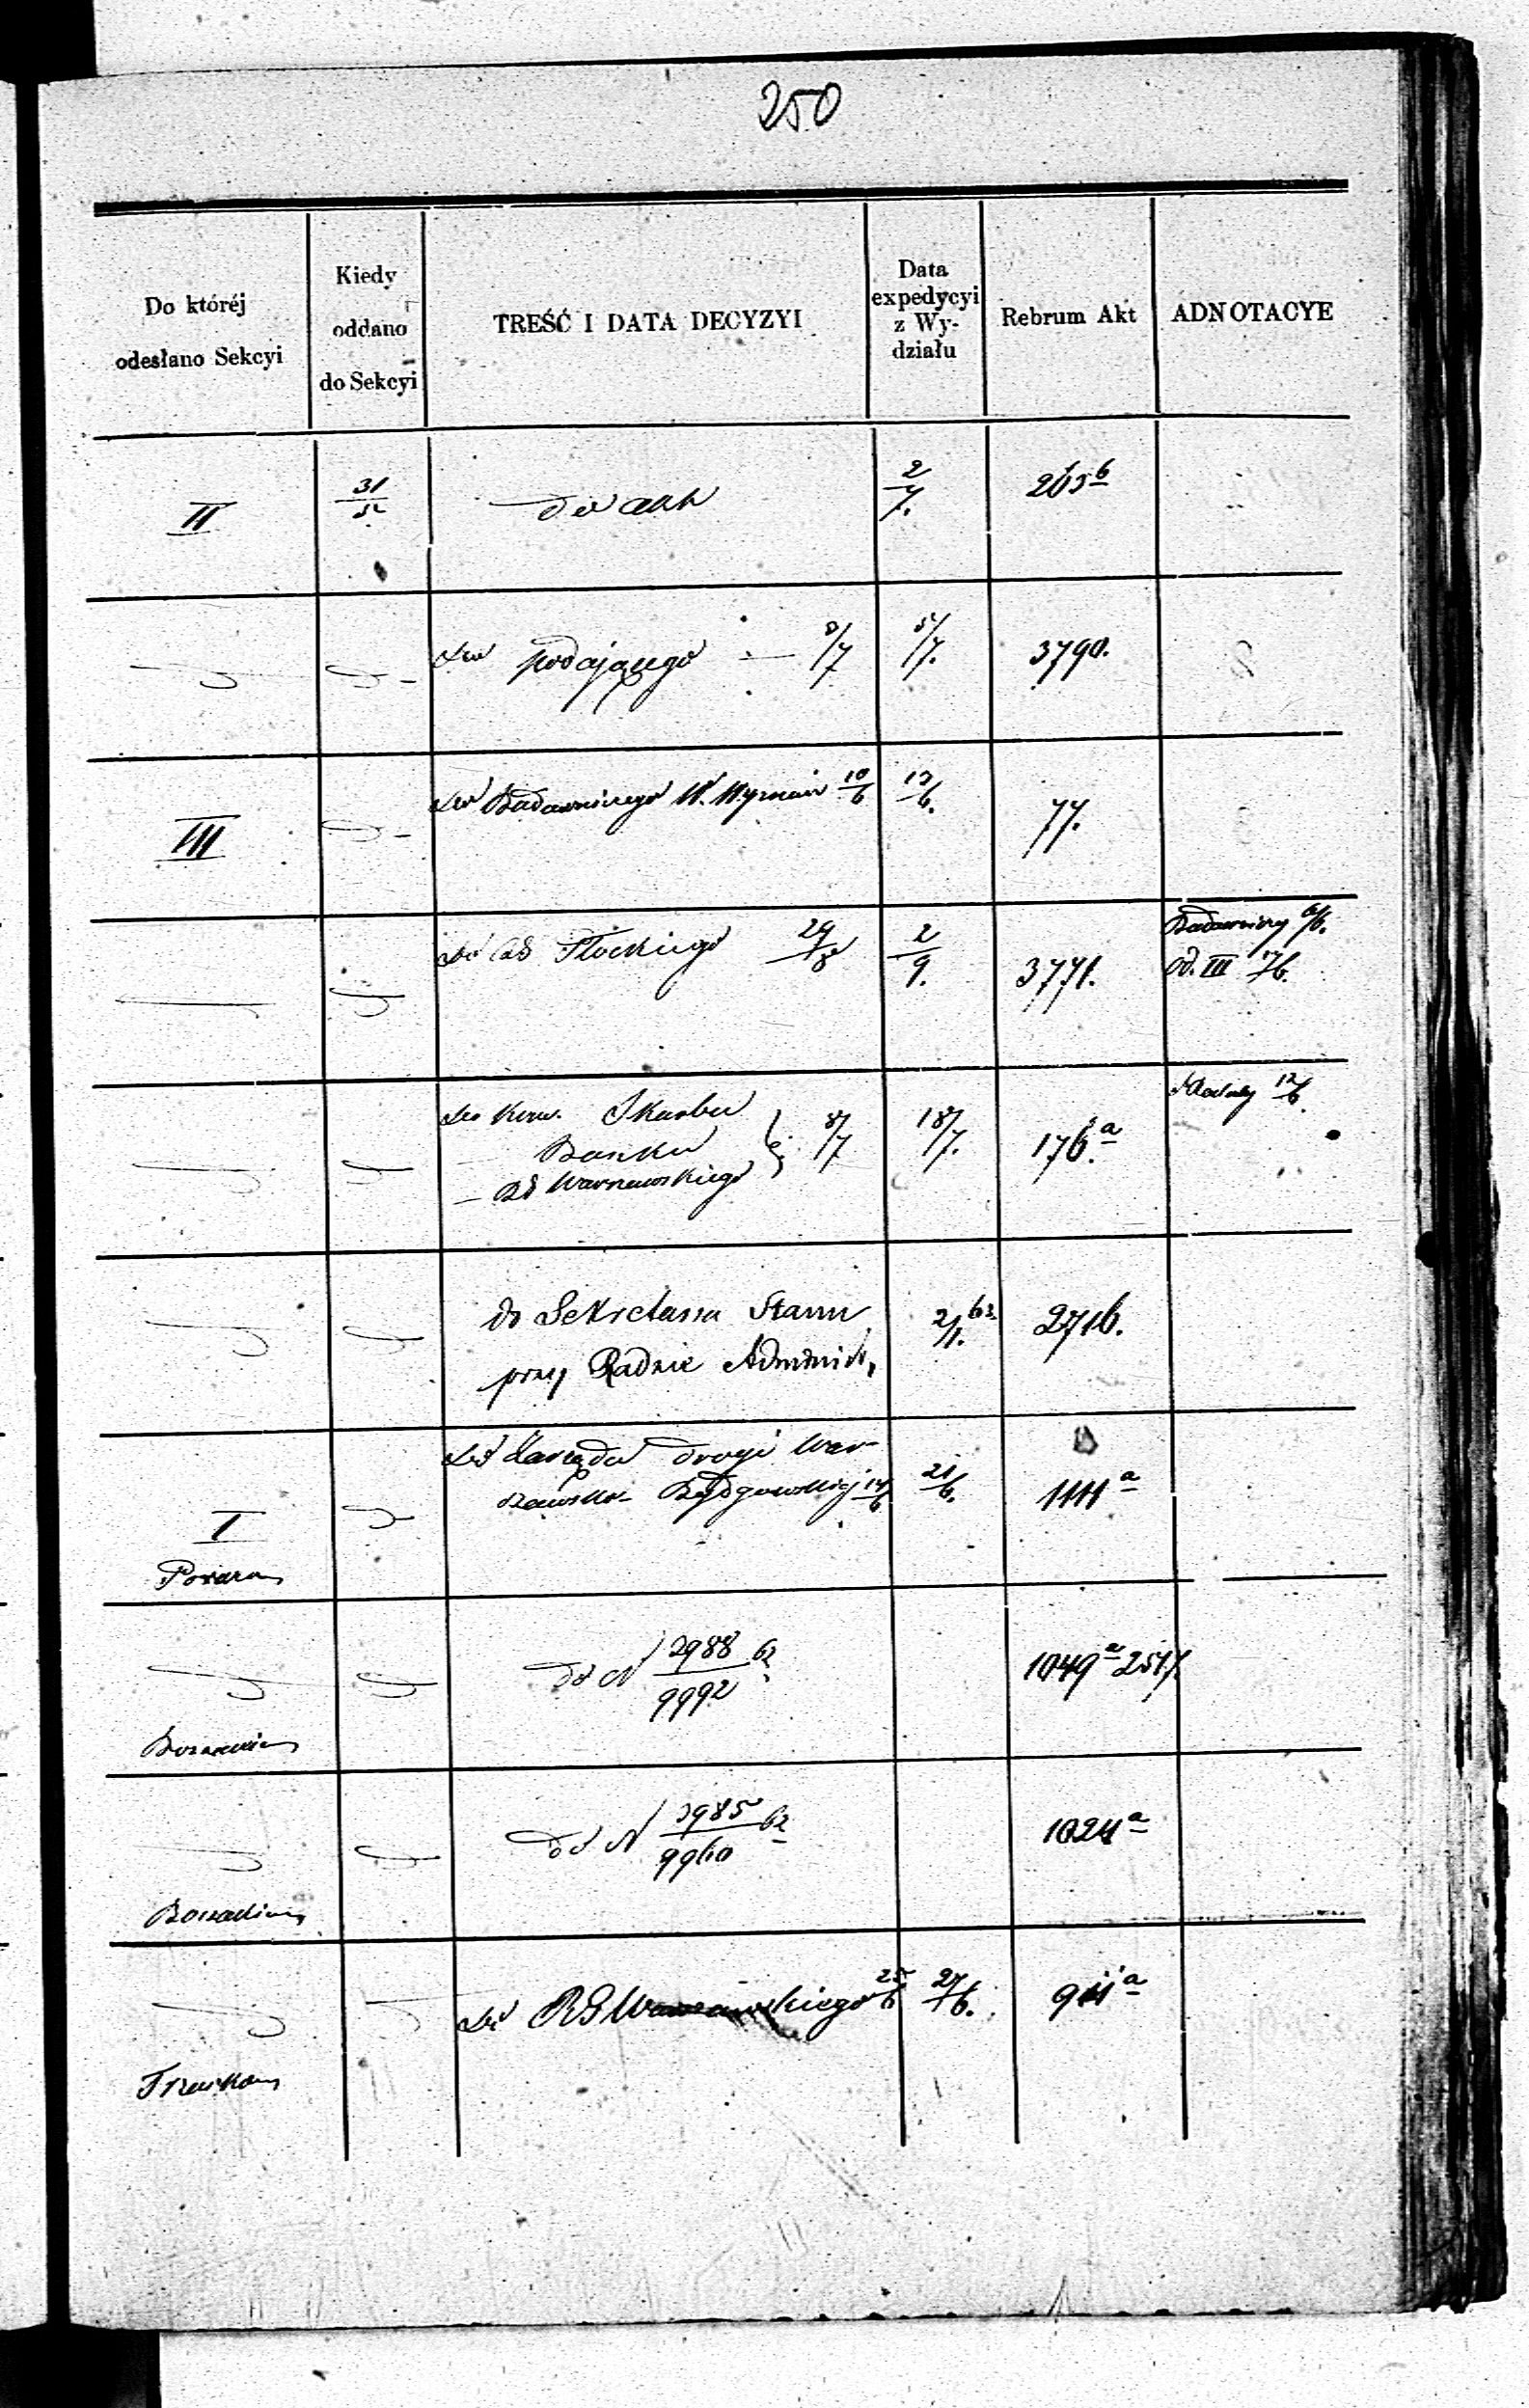 250
Do któréj
odesłano Sekcyi
Kiedy
oddano
do Sekcyi
TREŚĆ I DATA DECYZYI
Data
expedycyi
z Wy-
działu
Rebrum Akt
ADNOTACYE
II
31/5
do akt
2/7.
265 b
do podającego
5/7.
3790.
III
do Budowniczego
10/6
13/6.
77.
do RG Płockiego
29/8
2/9.
3771.
Budowniczy 6/6.
od. III 17/6.
do Kom. Skarbu
Banku
RG Warszawskiego
8/7
18/7.
176. a
12/6
do Sekretarza Stanu
przy Radzie Administr,
2/1. 63.
2716.
I
do Zarządu drogi War-
szawsko-Bydgowskiej 14/6
21/6.
1111 a
do N 2988/9992 62
1049 a 2517.
do N 3985/9960 62
1024 a
do RG Warszawskiego 25/6
27/6.
911 a